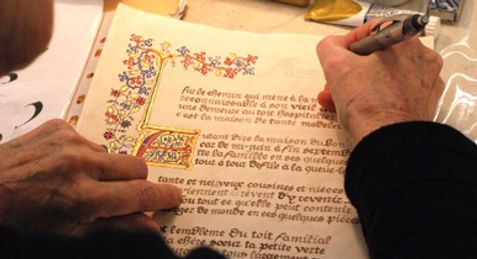 sur le chemin qui mène à la m
reconnaissable à son vieil
une demeure au toit hospitalier
c est la maison de tante madelei
Autant dire la maison du bon
car de mi-juin à fin septemb
la famille en ses quelques
tour à tour défile à la queue-l
tante et neveux cousines et nièces
viennent rêvent d'y revenir
ou tout ce qu'elle peut contenir
de monde en ces quelques pièces
est l'emblème du toit familial
chère sœur ta petite verte